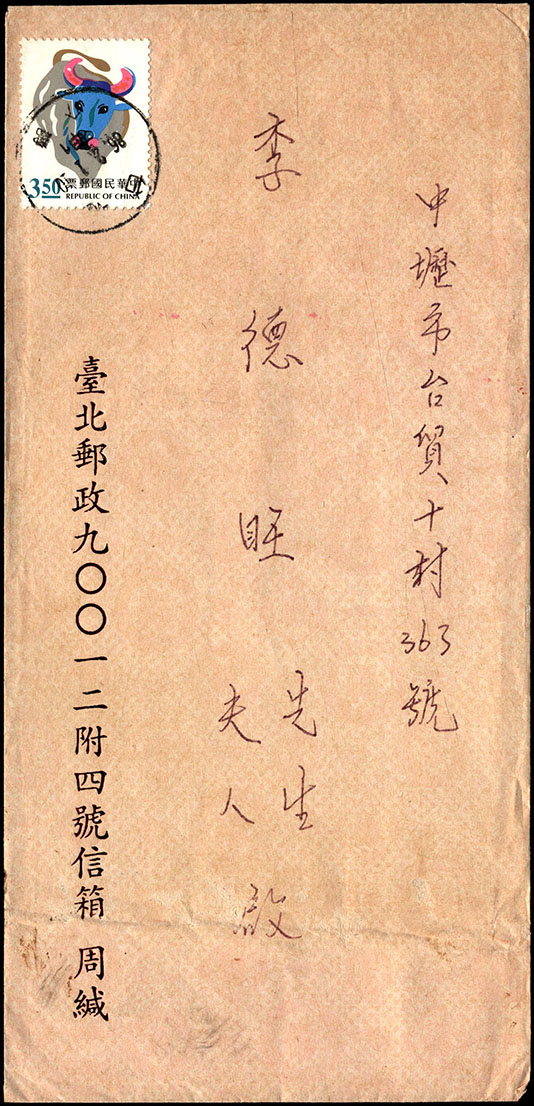 中壢市台貿十村363號
李德旺先生
夫人
啟
臺北郵政九〇〇一二附四號信箱 周緘
3.50
中華民國郵票
REPUBLIC OF CHINA